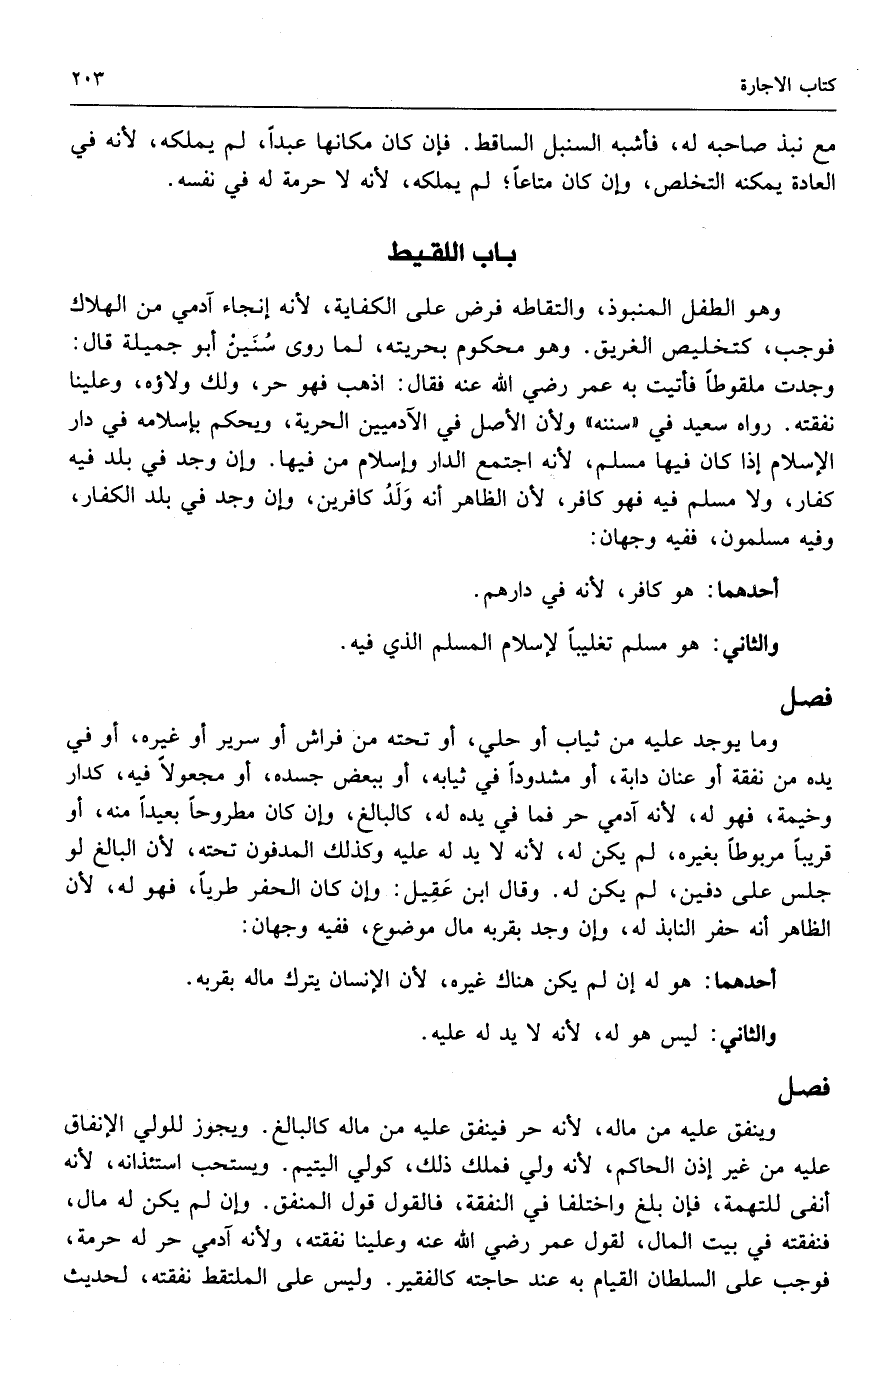 كتاب الاجارة ٢٠٣
مع نبذ صاحبه له، فأشبه السنبل الساقط. فإن كان مكانها عبداً، لم يملكه، لأنه في
العادة يمكنه التخلص، وإن كان متاعاً؛ لم يملكه، لأنه لا حرمة له في نفسه.
باب اللقيط
وهو الطفل المنبوذ، والتقاطه فرض على الكفاية، لأنه إنجاء آدمي من الهلاك
فوجب، كتخليص الغريق. وهو محكوم بحريته، لما روى سُنَينْ أبو جميلة قال:
وجدت ملقوطاً فأتيت به عمر رضي الله عنه فقال: اذهب فهو حر، ولك ولاؤه، وعلينا
نفقته. رواه سعيد في «سننه» ولأن الأصل في الآدميين الحرية، ويحكم بإسلامه في دار
الإسلام إذا كان فيها مسلم، لأنه اجتمع الدار وإسلام من فيها. وإن وجد في بلد فيه
كفار، ولا مسلم فيه فهو كافر، لأن الظاهر أنه وَلَدُ كافرين، وإن وجد في بلد الكفار،
وفيه مسلمون، ففيه وجهان:
أحدهما: هو كافر، لأنه في دارهم.
والثاني: هو مسلم تغليباً لإسلام المسلم الذي فيه.
فصل
وما يوجد عليه من ثياب أو حلي، أو تحته من فراش أو سرير أو غيره، أو في
يده من نفقة أو عنان دابة، أو مشدوداً في ثيابه، أو ببعض جسده، أو مجعولاً فيه، كدار
وخيمة، فهو له، لأنه آدمي حر فما في يده له، كالبالغ، وإن كان مطروحاً بعيداً منه، أو
قريباً مربوطاً بغيره، لم يكن له، لأنه لا يد له عليه وكذلك المدفون تحته، لأن البالغ لو
جلس على دفين، لم يكن له. وقال ابن عَقِيل: وإن كان الحفر طرياً، فهو له، لأن
الظاهر أنه حفر النابذ له، وإن وجد بقربه مال موضوع، ففيه وجهان:
أحدهما: هو له إن لم يكن هناك غيره، لأن الإنسان يترك ماله بقربه.
والثاني: ليس هو له، لأنه لا يد له عليه.
فصل
وينفق عليه من ماله، لأنه حر فينفق عليه من ماله كالبالغ. ويجوز للولي الإنفاق
عليه من غير إذن الحاكم، لأنه ولي فملك ذلك، كولي اليتيم. ويستحب استئذانه، لأنه
أنفى للتهمة، فإن بلغ واختلفا في النفقة، فالقول قول المنفق. وإن لم يكن له مال،
فنفقته في بيت المال، لقول عمر رضي الله عنه وعلينا نفقته، ولأنه آدمي حر له حرمة،
فوجب على السلطان القيام به عند حاجته كالفقير. وليس على الملتقط نفقته، لحديث